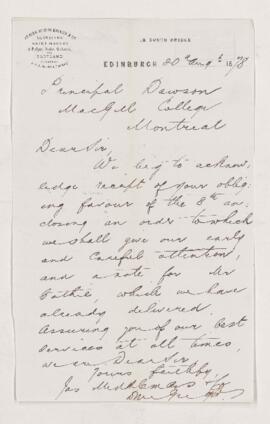 SCOTLAND
18 SOUTH BRIDGE
EDINBURGH 20th Augt. 1878
Principal Dawson
MacGill College
Montreal
Dear Sir,
We beg to acknow
ledge receipt of your oblig
ing favour of the 8th en
closing an order to which
we shall give our early
and careful attention,
and a note for Mr
which we have
already delivered.
Assuring you of our best
services at all times
we are Dear Sir
Yours faithfy.
Jas Middlemass & Co